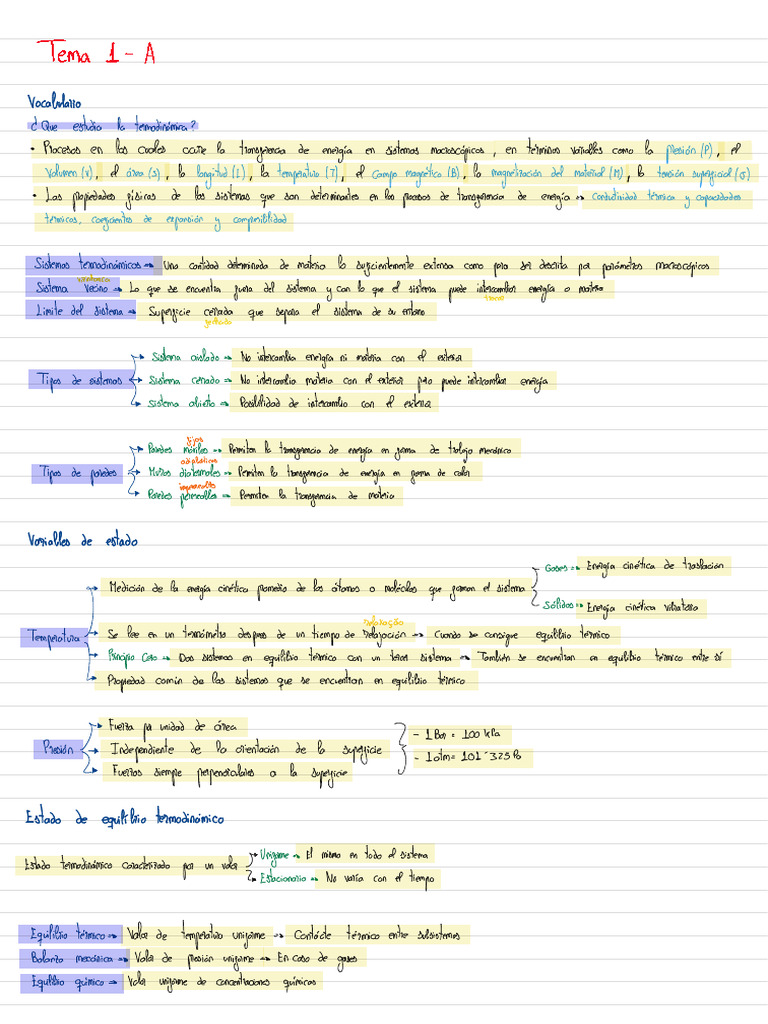 Tema 1 - A
Vocabulario
¿Que estudia la termodinámica?
• Procesos en los cuales ocurre la transferencia de energía en sistemas macroscópicos, en terminos variables como la presión (P), el
Volumen (V), el área (S), la longitud (L), la temperatura (T), el campo magnético (B), la magnetización del material (M), la tensión superficial (σ)
• Las propiedades físicas de los sistemas que son determinantes en los procesos de transferencia de energía → conductividad térmica y capacidades
térmicas, coeficientes de expansión y compresibilidad
Sistemas termodinámicos → Una cantidad determinada de materia lo suficientemente extensa como para ser descrita por parámetros macroscópicos
Sistema vecino → Lo que se encuentra fuera del sistema y con lo que el sistema puede intercambiar energía o materia
Limite del sistema → Superficie cerrada que separa el sistema de su entorno
Tipos de sistemas
Sistema aislado → No intercambia energía ni materia con el exterior
Sistema cerrado → No intercambia materia con el exterior pero puede intercambiar energía
Sistema abierto → Posibilidad de intercambio con el exterior
Tipos de paredes
fijas
Paredes móviles → Permiten la transferencia de energía en forma de trabajo mecánico
adiabáticas
Muros diatermales → Permiten la transferencia de energía en forma de calor
impermeables
Paredes permeables → Permiten la transferencia de materia
Variables de estado
Temperatura
Medición de la energía cinética promedio de los átomos o moléculas que forman el sistema
Gases → Energía cinética de traslación
Sólidos → Energía cinética vibratoria
relaxação
Se lee en un termómetro despues de un tiempo de relajación → Cuando se consigue equilibrio térmico
Principio Cero → Dos sistemas en equilibrio térmico con un tercer sistema → También se encuentran en equilibrio térmico entre sí
Propiedad común de los sistemas que se encuentran en equilibrio térmico
Presión
Fuerza por unidad de área
Independiente de la orientación de la superficie
Fuerzas siempre perpendiculares a la superficie
- 1 Bar = 100 kPa
- 1 atm = 101'325 Pa
Estado de equilibrio termodinámico
Estado termodinámico caracterizado por un valor
Uniforme → El mismo en todo el sistema
Estacionario → No varía con el tiempo
Equilibrio térmico → Valor de temperatura uniforme → Contacto térmico entre subsistemas
Balanza mecánica → Valor de presión uniforme → En caso de gases
Equilibrio químico → Valor uniforme de concentraciones químicas